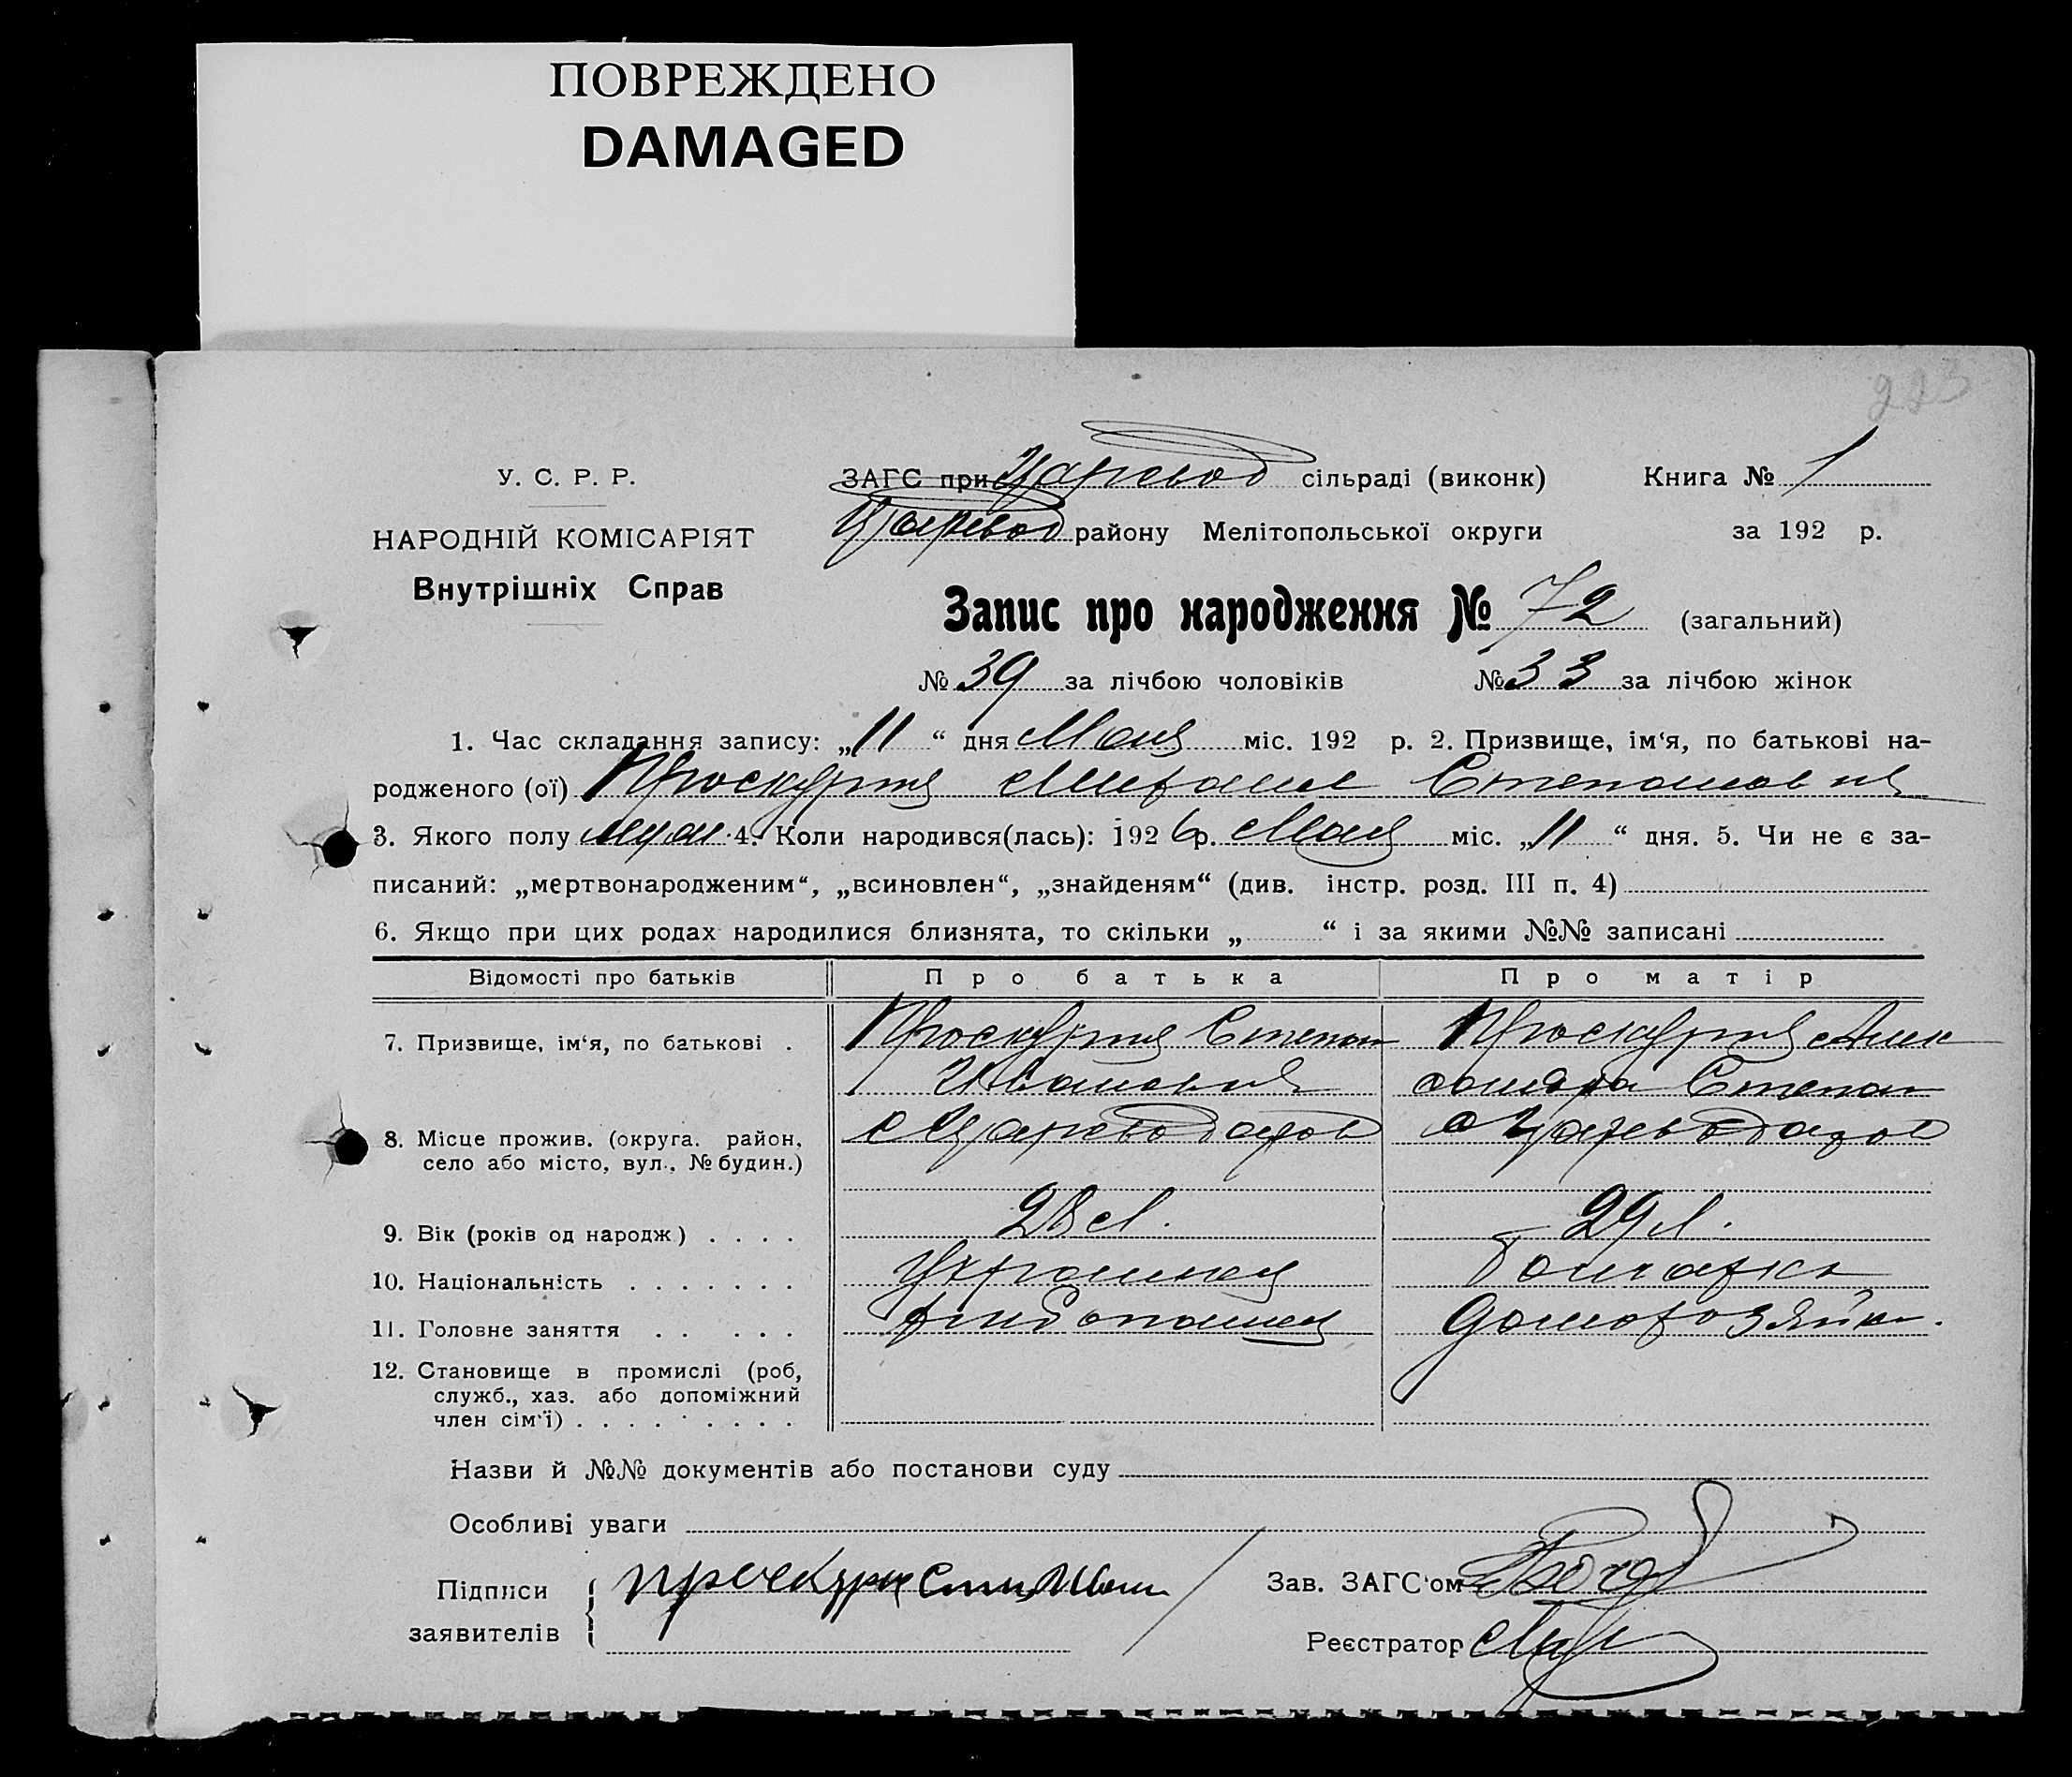 ПОВРЕЖДЕНО
DAMAGED
223
У. С. Р. Р.
НАРОДНІЙ КОМІСАРІЯТ
Внутрішніх Справ
ЗАГС при Царевод сільраді (виконк) Книга № 1
Царевод району Мелітопольської округи за 192 р.
Запис про народження № 72 (загальний)
№ 39 за лічбою чоловіків № 33 за лічбою жінок
1. Час складання запису: „11“ дня Мая міс. 192 р. 2. Призвище, ім‘я, по батькові на-
родженого (ої) Проскурня Михаил Степанович
3. Якого полу муж. 4. Коли народився(лась): 1926 р. Мая міс. „11“ дня. 5. Чи не є за-
писаний: „мертвонародженим“, „всиновлен“, „знайденям“ (див. інстр. розд. III п. 4)
6. Якщо при цих родах народилися близнята, то скільки „ “ і за якими №№ записані
Відомості про батьків Про батька Про матір
7. Призвище, ім‘я, по батькові . Проскурня Степан Проскурня Алек
Иванович сандра Степан
8. Місце прожив. (округа. район, с Царевода с Царевода
село або місто, вул., № будин.)
9. Вік (років од народж) . . . . 28 л. 29 л.
10. Національність . . . . . . . Украинец Болгарка
11. Головне заняття . . . . . хлебопашец домохозяйк.
12. Становище в промислі (роб,
служб., хаз. або допоміжний
член сім‘ї) . . . . . . . . .
Назви й №№ документів або постанови суду
Особливі уваги
Підписи Проскурн Степ Иван Зав. ЗАГС‘ом
заявителів Реєстратор